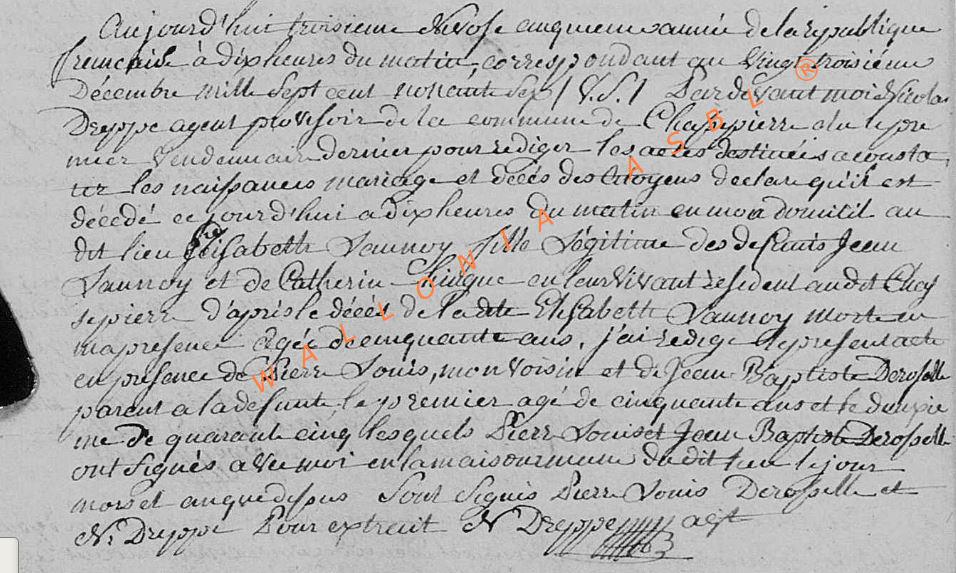 Aujourd'hui troisieme Nivose cinquieme année de la republique
francaise à dix heures du matin, correspondant au Vingt troisieme
Decembre mille sept cent nonante sept / V.S. / Pardevant moi Nicolas
Dreppe agent provisoir de la commune de Chassepierre elu le pre
mier Vendemiair dernier pour rédiger les actes destinées a consta
ter les naissances mariage et décés des Citoyens declare qu'il est
décédé ce jourd'hui a dix heures du matin en mon domicil au
dit lieu Elisabeth Launoy fille Légitime des defunts Jean
Launoy et de Catherin en leur Vivant résident audit Chas
sepierre d'après le décés de ladte Elisabeth Launoy morte en
ma presence agée de cinquante ans, j'ai rédigé le present acte
en presence de Pierre Louis, mon voisin et de Jean Baptiste Deroselle
parent a la defunte, le premier agé de cinquante ans et le deuxie
me de quarante cinq lesquels Pierre Louis et Jean Baptiste Deroselle
ont signés avec moi en la maison du dit lieu le jour
mois et an que dessus Sont signés Pierre Louis Deroselle et
N. Dreppe Pour extrait N Dreppe agt
WALLONIA ASBL ®